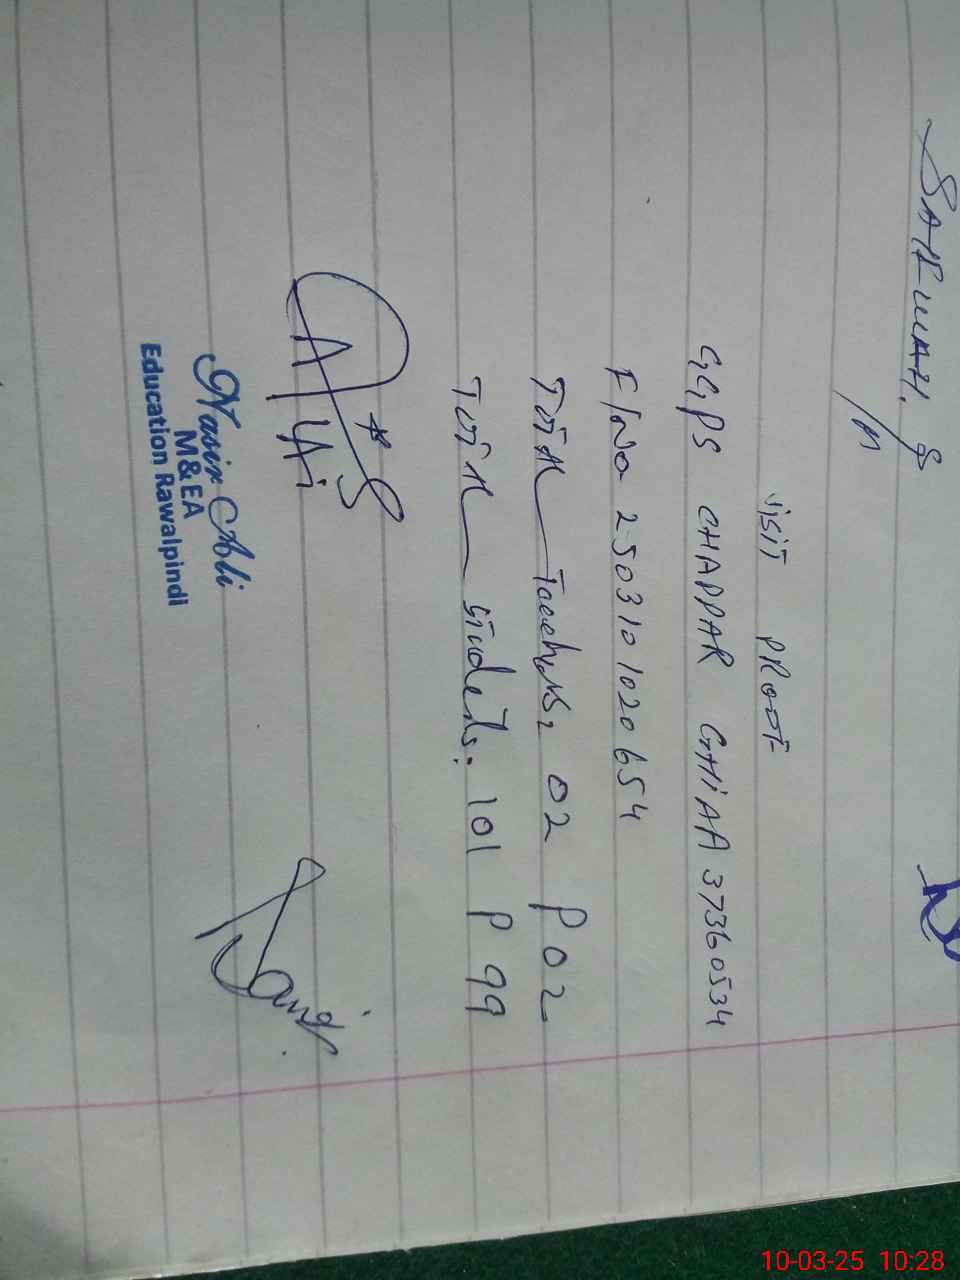 SARWAR
VISIT PROOF
GGPS CHAPPAR GHIAA 37360534
F/No 250310 1020654
Total Teachers: 02 P 02
Total Students: 101 P 99
Nasir Ali
M&EA
Education Rawalpindi
10-03-25 10:28